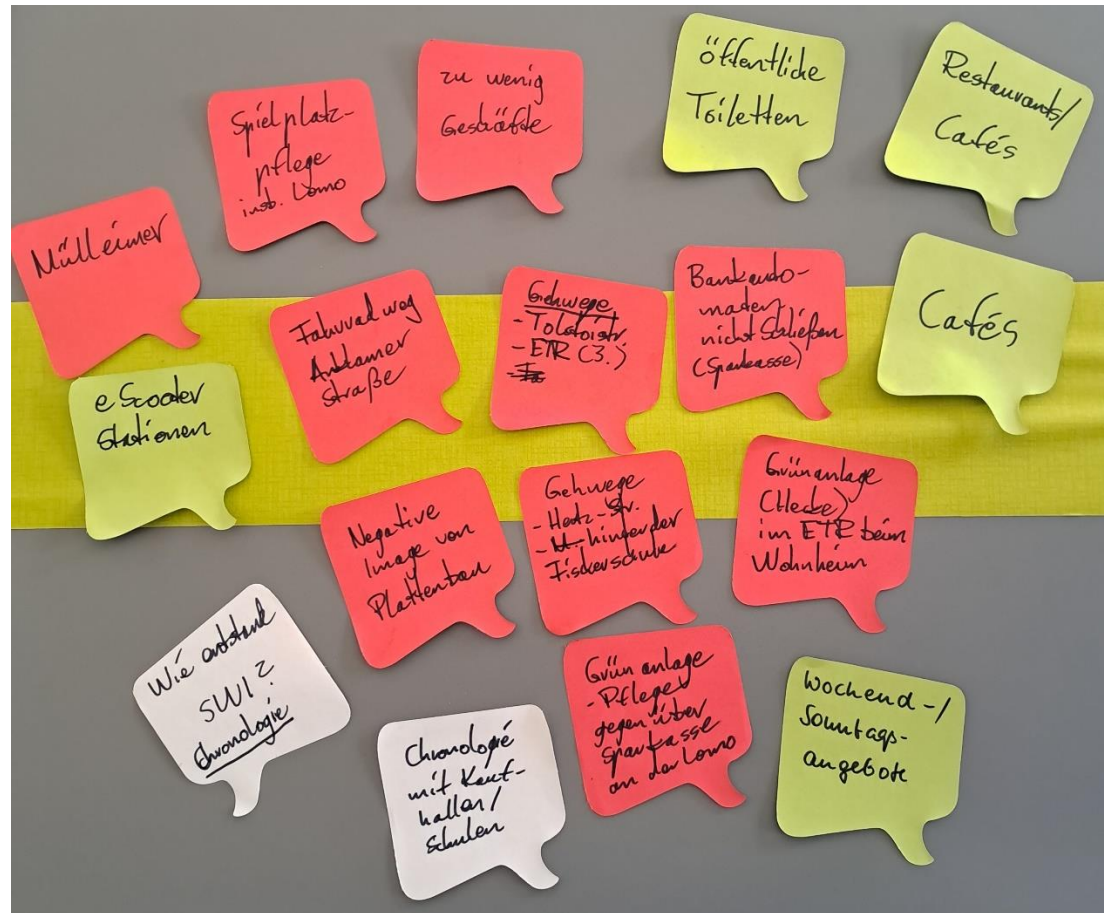 Spielplatz-
pflege
insb. Lomo
zu wenig
Geschäfte
öffentliche
Toiletten
Restaurants/
Cafés
Mülleimer
Fahrradweg
Anklamer
Straße
Gehwege
- Tolstoistr
- ETR (3.)
Bankauto-
maten
nicht schließen
(Sparkasse)
Cafés
e Scooter
Stationen
Negative
Image von
Plattenbau
Gehwege
- Hertz-Str.
- hinter der
Fiskerschule
Grünanlage
(Hecke)
im ETR beim
Wohnheim
Wie entstand
SWI?
Chronologie
Chronologie
mit Kauf-
hallen/
Schulen
Grünanlage
- Pflege
gegenüber
Sparkasse
an der Lomo
Wochend-/
Sonntags-
angebote